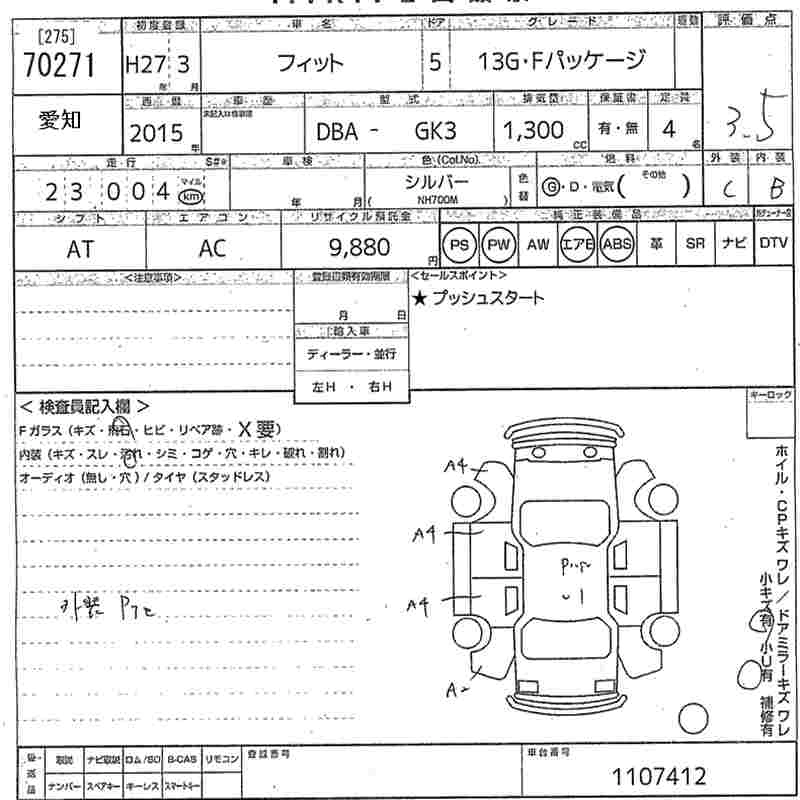 [275]
70271
初度登録
車名
ドア
グレード
評価点
H27 3
年 月
フィット
5
13G・Fパッケージ
3.5
愛知
西暦
車歴
型式
排気量
保証書
定員
2015
年
DBA - GK3
1,300
CC
有・無
4
名
外装 内装
走行
車検
色(Col.No).
燃料
23 004
マイル
km
年 月
シルバー
( NH700M )
色替
G・D・電気( その他 )
C B
シフト
エアコン
リサイクル預託金
純正装備品
AT
AC
9,880
円
PS PW AW エアB ABS 革 SR ナビ DTV
<注意事項>
登録書類有効期限
<セールスポイント>
月 日
★ プッシュスタート
輸入車
ディーラー・並行
左H ・ 右H
キーロック
< 検査員記入欄 >
Fガラス(キズ・飛石・ヒビ・リペア跡・X要)
内装(キズ・スレ・汚れ・シミ・コゲ・穴・キレ・破れ・割れ)
オーディオ(無し・穴)/タイヤ(スタッドレス)
A4
A4
A4
外装
ホイル・CPキズ ワレ/ドアミラーキズ ワレ
小キズ有 小U有 補修有
取説 ナビ取説 ロム/SD B-CAS リモコン
ナンバー スペアキー キーレス スマートキー
登録番号
車台番号
1107412